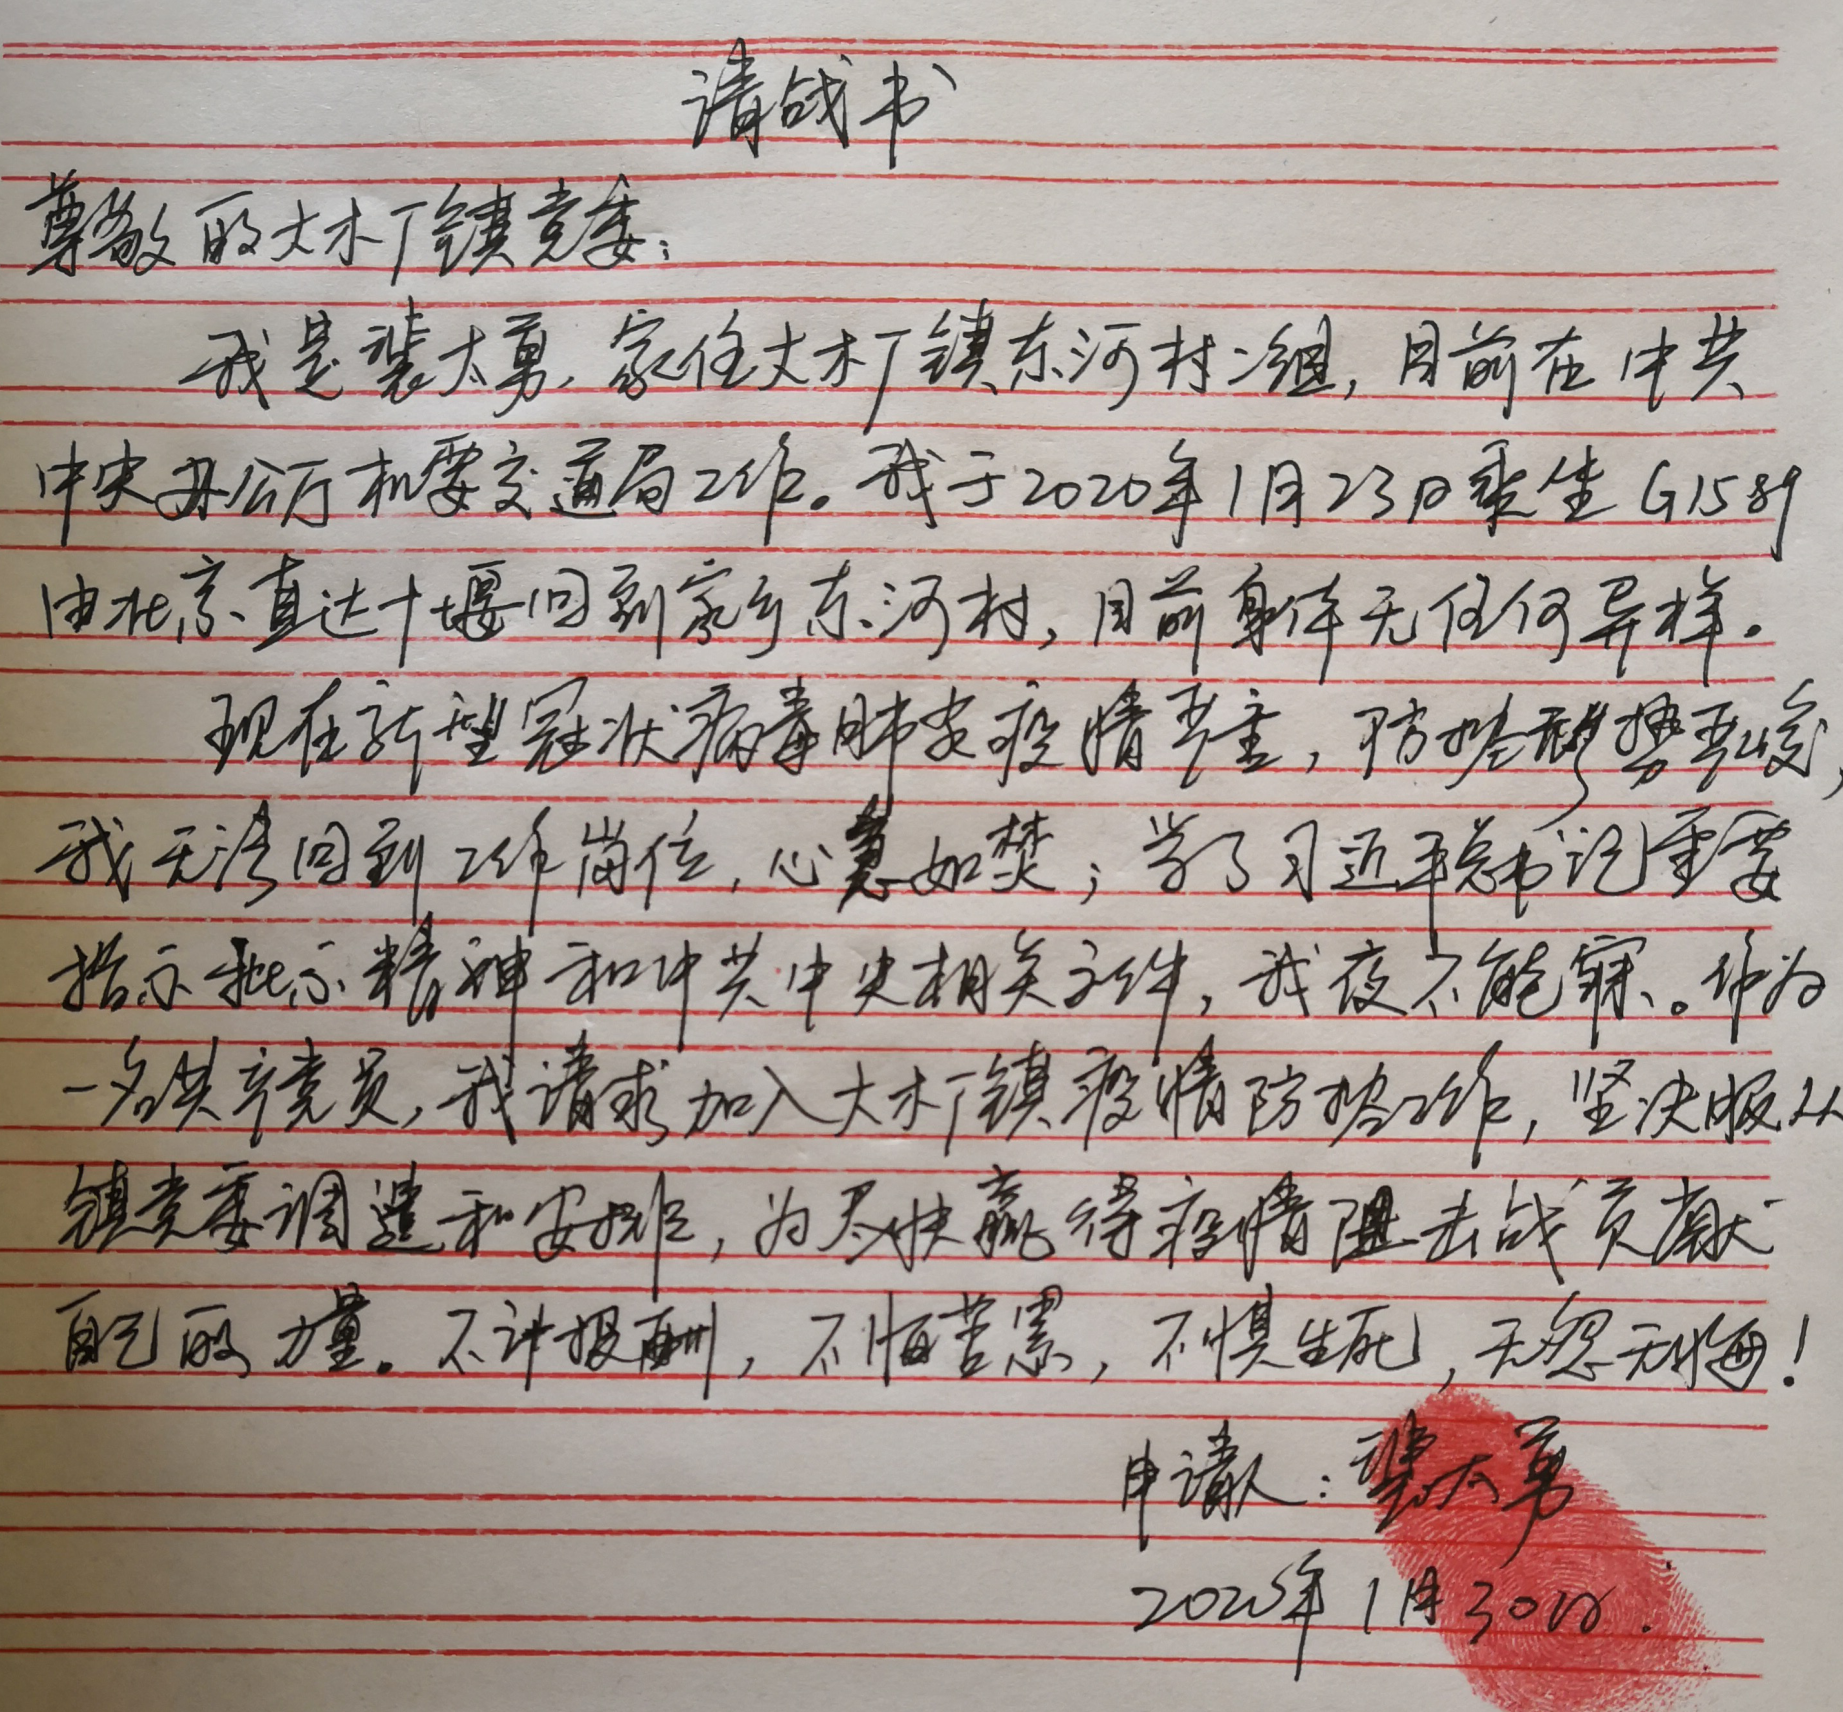 请战书
尊敬的大木厂镇党委：
我是裴大勇，家住大木厂镇东河村二组，目前在中共
中央办公厅机要交通局工作。我于2020年1月23日乘坐G1589
由北京直达十堰回到家乡东河村，目前身体无任何异样。
现在新型冠状病毒肺炎疫情严重，防控形势严峻，
我无法回到工作岗位，心急如焚；学了习近平总书记重要
指示批示精神和中共中央相关文件，我夜不能寐。作为
一名共产党员，我请求加入大木厂镇疫情防控工作，坚决服从
镇党委调遣和安排，为尽快赢得疫情阻击战贡献
自己的力量。不计报酬，不悔苦累，不惧生死，无怨无悔！
申请人：裴大勇
2020年1月30日.